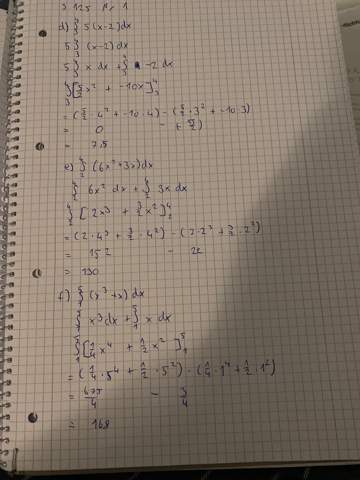 S 125 Nr. 1
d) ∫₃⁴ 5(x-2)dx
5 ∫₃⁴ (x-2)dx
5 ∫₃⁴ x dx + ∫₃⁴ -2 dx
∫₃⁴ [5/2 x² + -10x]₃⁴
= (5/2 · 4² + -10 · 4) - (5/2 · 3² + -10 · 3)
= 0 -
= 7,5
e) ∫₂⁴ (6x²+3x)dx
∫₂⁴ 6x² dx + ∫₂⁴ 3x dx
∫₂⁴ [2x³ + 3/2 x²]₂⁴
= (2 · 4³ + 3/2 · 4²) - (2 · 2³ + 3/2 · 2²)
= 152 - 22
= 130
f) ∫₁⁵ (x³+x) dx
∫₁⁵ x³ dx + ∫₁⁵ x dx
∫₁⁵ [1/4 x⁴ + 1/2 x²]₁⁵
= (1/4 · 5⁴ + 1/2 · 5²) - (1/4 · 1⁴ + 1/2 · 1²)
= 675/4 - 3/4
= 168